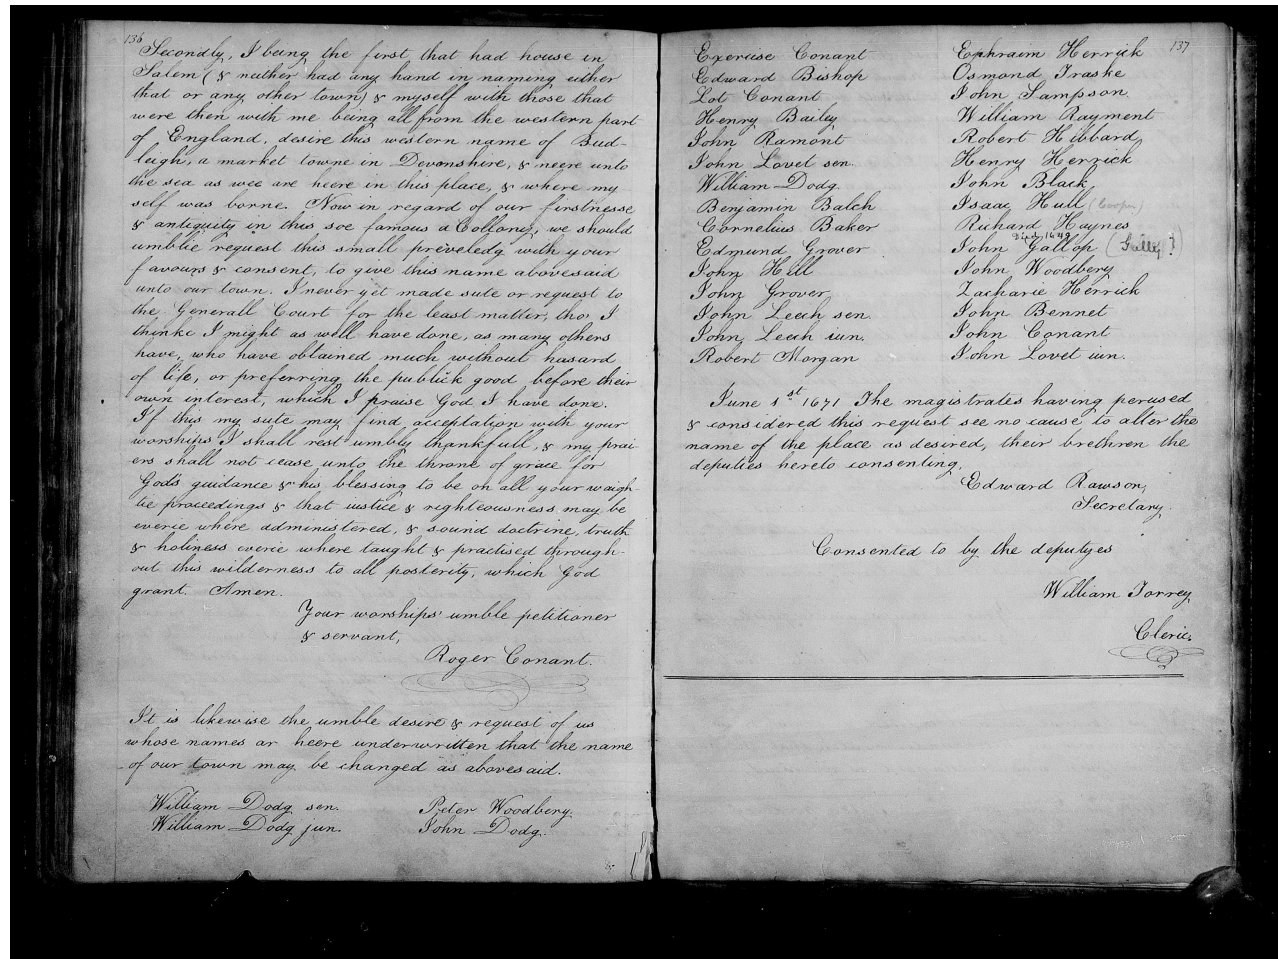 136
Secondly, I being the first that had house in
Salem (& neither had any hand in naming either
that or any other town) & myself with those that
were then with me being all from the western part
of England, desire this western name of Bud-
leigh, a market towne in Devonshire, & neere unto
the sea as wee are heere in this place, & where my
self was borne. Now in regard of our firstnesse
& antiquity in this soe famous a Collony, we should
umblie request this small preveledg with your
favours & consent, to give this name abovesaid
unto our town. I never yet made sute or request to
the Generall Court for the least matter, tho I
thinke I might as well have done, as many others
have, who have obtained much without hasard
of life, or preferring the publick good before their
own interest, which I praise God I have done.
If this my sute may find acceptation with your
worships I shall rest umbly thankfull & my prai
ers shall not cease unto the throne of grace for
God's guidance & his blessing to be on all your waigh-
tie proceedings & that iustice & righteousness may be
everie where administered, & sound doctrine, truth
& holiness everie where taught & practised through-
out this wilderness to all posterity, which God
grant. Amen.
Your worships' umble petitioner
& servant,
Roger Conant.
It is likewise the umble desire & request of us
whose names ar heere underwritten that the name
of our town may be changed as abovesaid.
William Dodg sen. Peter Woodbery
William Dodg jun. John Dodg.
137
Exercise Conant Ephraim Herrick
Edward Bishop Osmond Traske
Lot Conant John Sampson
Henry Bailey William Rayment
John Ramont Robert Hibbard
John Lovet sen. Henry Herrick
William Dodg. John Black
Benjamin Balch Isaac Hull (Cooper)
Cornelius Baker Richard Haynes
Died 1649
Edmund Grover John Gallop (Gally?)
John Hill John Woodbery
John Grover Zacharie Herrick
John Leech sen. John Bennet
John Leech iun. John Conant
Robert Morgan John Lovet iun.
June 1st 1671 The magistrates having perused
& considered this request see no cause to alter the
name of the place as desired, their brethren the
deputies hereto consenting.
Edward Rawson,
Secretary.
Consented to by the deputyes
William Torrey
Cleric.